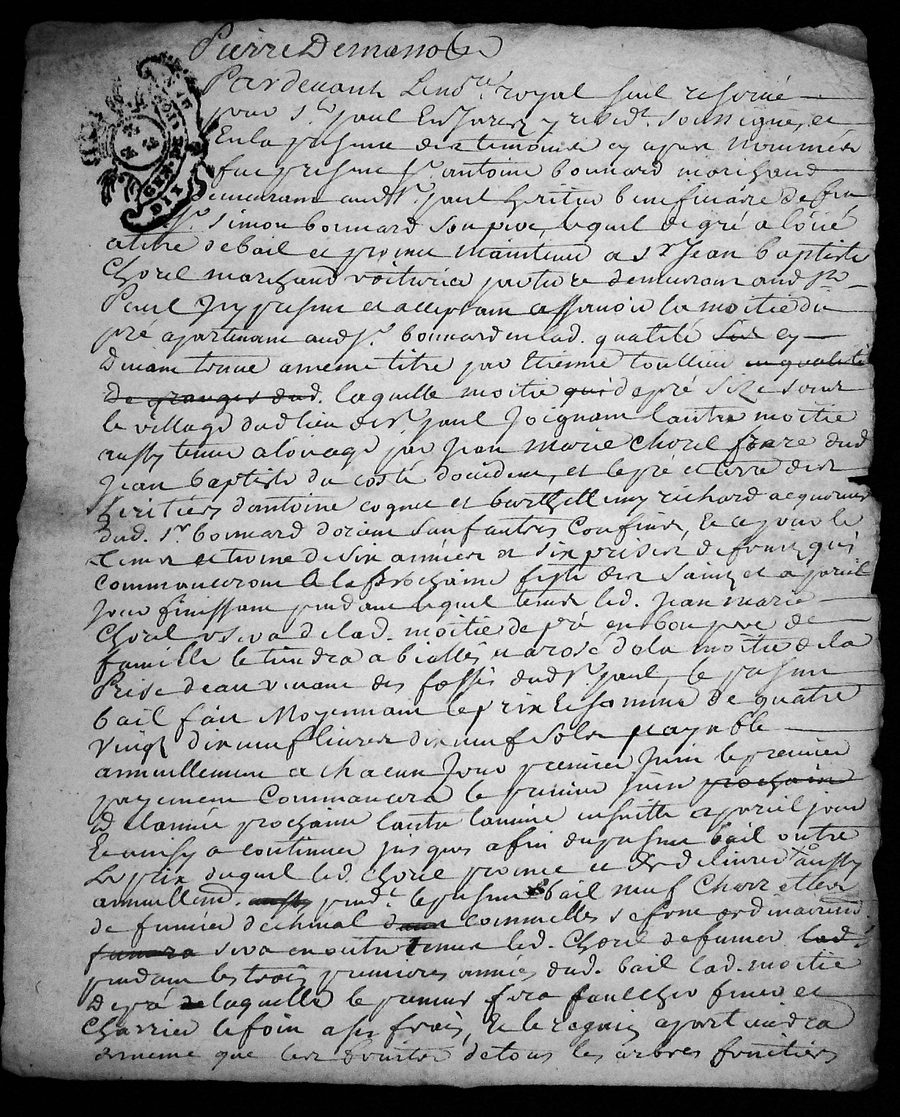 Pierre Demano
GENER
DIX
Pardevant Le no.re royal seul reservé
pour S.t paul En Jarez y resid.t soussigné, et
En la presence des temoins cy apres nommés
fut present S.r antoine bonnard marchand
demeurant aud S.t paul heritier beneficiaire de feu
S.r Simon bonnard son pere lequel de gré a loüé
a titre de bail et promis maintenir a S.r Jean baptiste
Chorel marchand voiturier par terre demeurant aud S.t
Paul Icy present et acceptant assavoir la moitié du
pré apartenant aud S.r bonnard en lad. qualité cy
devant tenue a meme titre par Etienne Toullieu en qualité
de granger dud. laquelle moitié de pré size sous
le village dud lieu de S.t paul Joignant l'autre moitié
aussy tenue a loüage par Jean Marie Chorel frere dud
Jean baptiste du costé d'occident, et le pré et terre des
heritiers d'antoine cognet et barthellemy richard acquereur
dud. S.r bonnard d'orient sauf autres Confins, Et ce pour le
tems et terme de six années et six prises de fruits qui
commanceront a la prochaine feste des Saints et a pareil
jour finissant pendant lequel tems led. Jean marie
Chorel usera de lad. moitié de pré en bon pere de
famille le tiendra a biallé et arosé de la moitié de la
Prise d'eau venant des fossés dud S.t paul, le present
bail fait Moyennant le prix et somme de quatre
vingt dix neuf livres dix neuf sols payable
annuellement a chacun Jour premier Juin le premier
payement Commancera le premier Juin prochain
de l'année prochaine l'autre l'année ensuitte a pareil jour
Et ainsy a continuer jusques a fin du present bail outre
Le prix duquel led. Chorel promet de delivrer aussy
annuellem.t aussy pend.t le present bail neuf Charretées
de fumier de cheval comme elles se font ordinairem.t
fumera sera en outre tenu led. Chorel de fumer lad.
pendant les trois premieres années dud. bail lad. moitié
De pré de laquelle le preneur fera faulcher fener et
Charrier le foin a ses frais, Et le regain apartiendra
de meme que les fruits de tous les arbres fruitiers